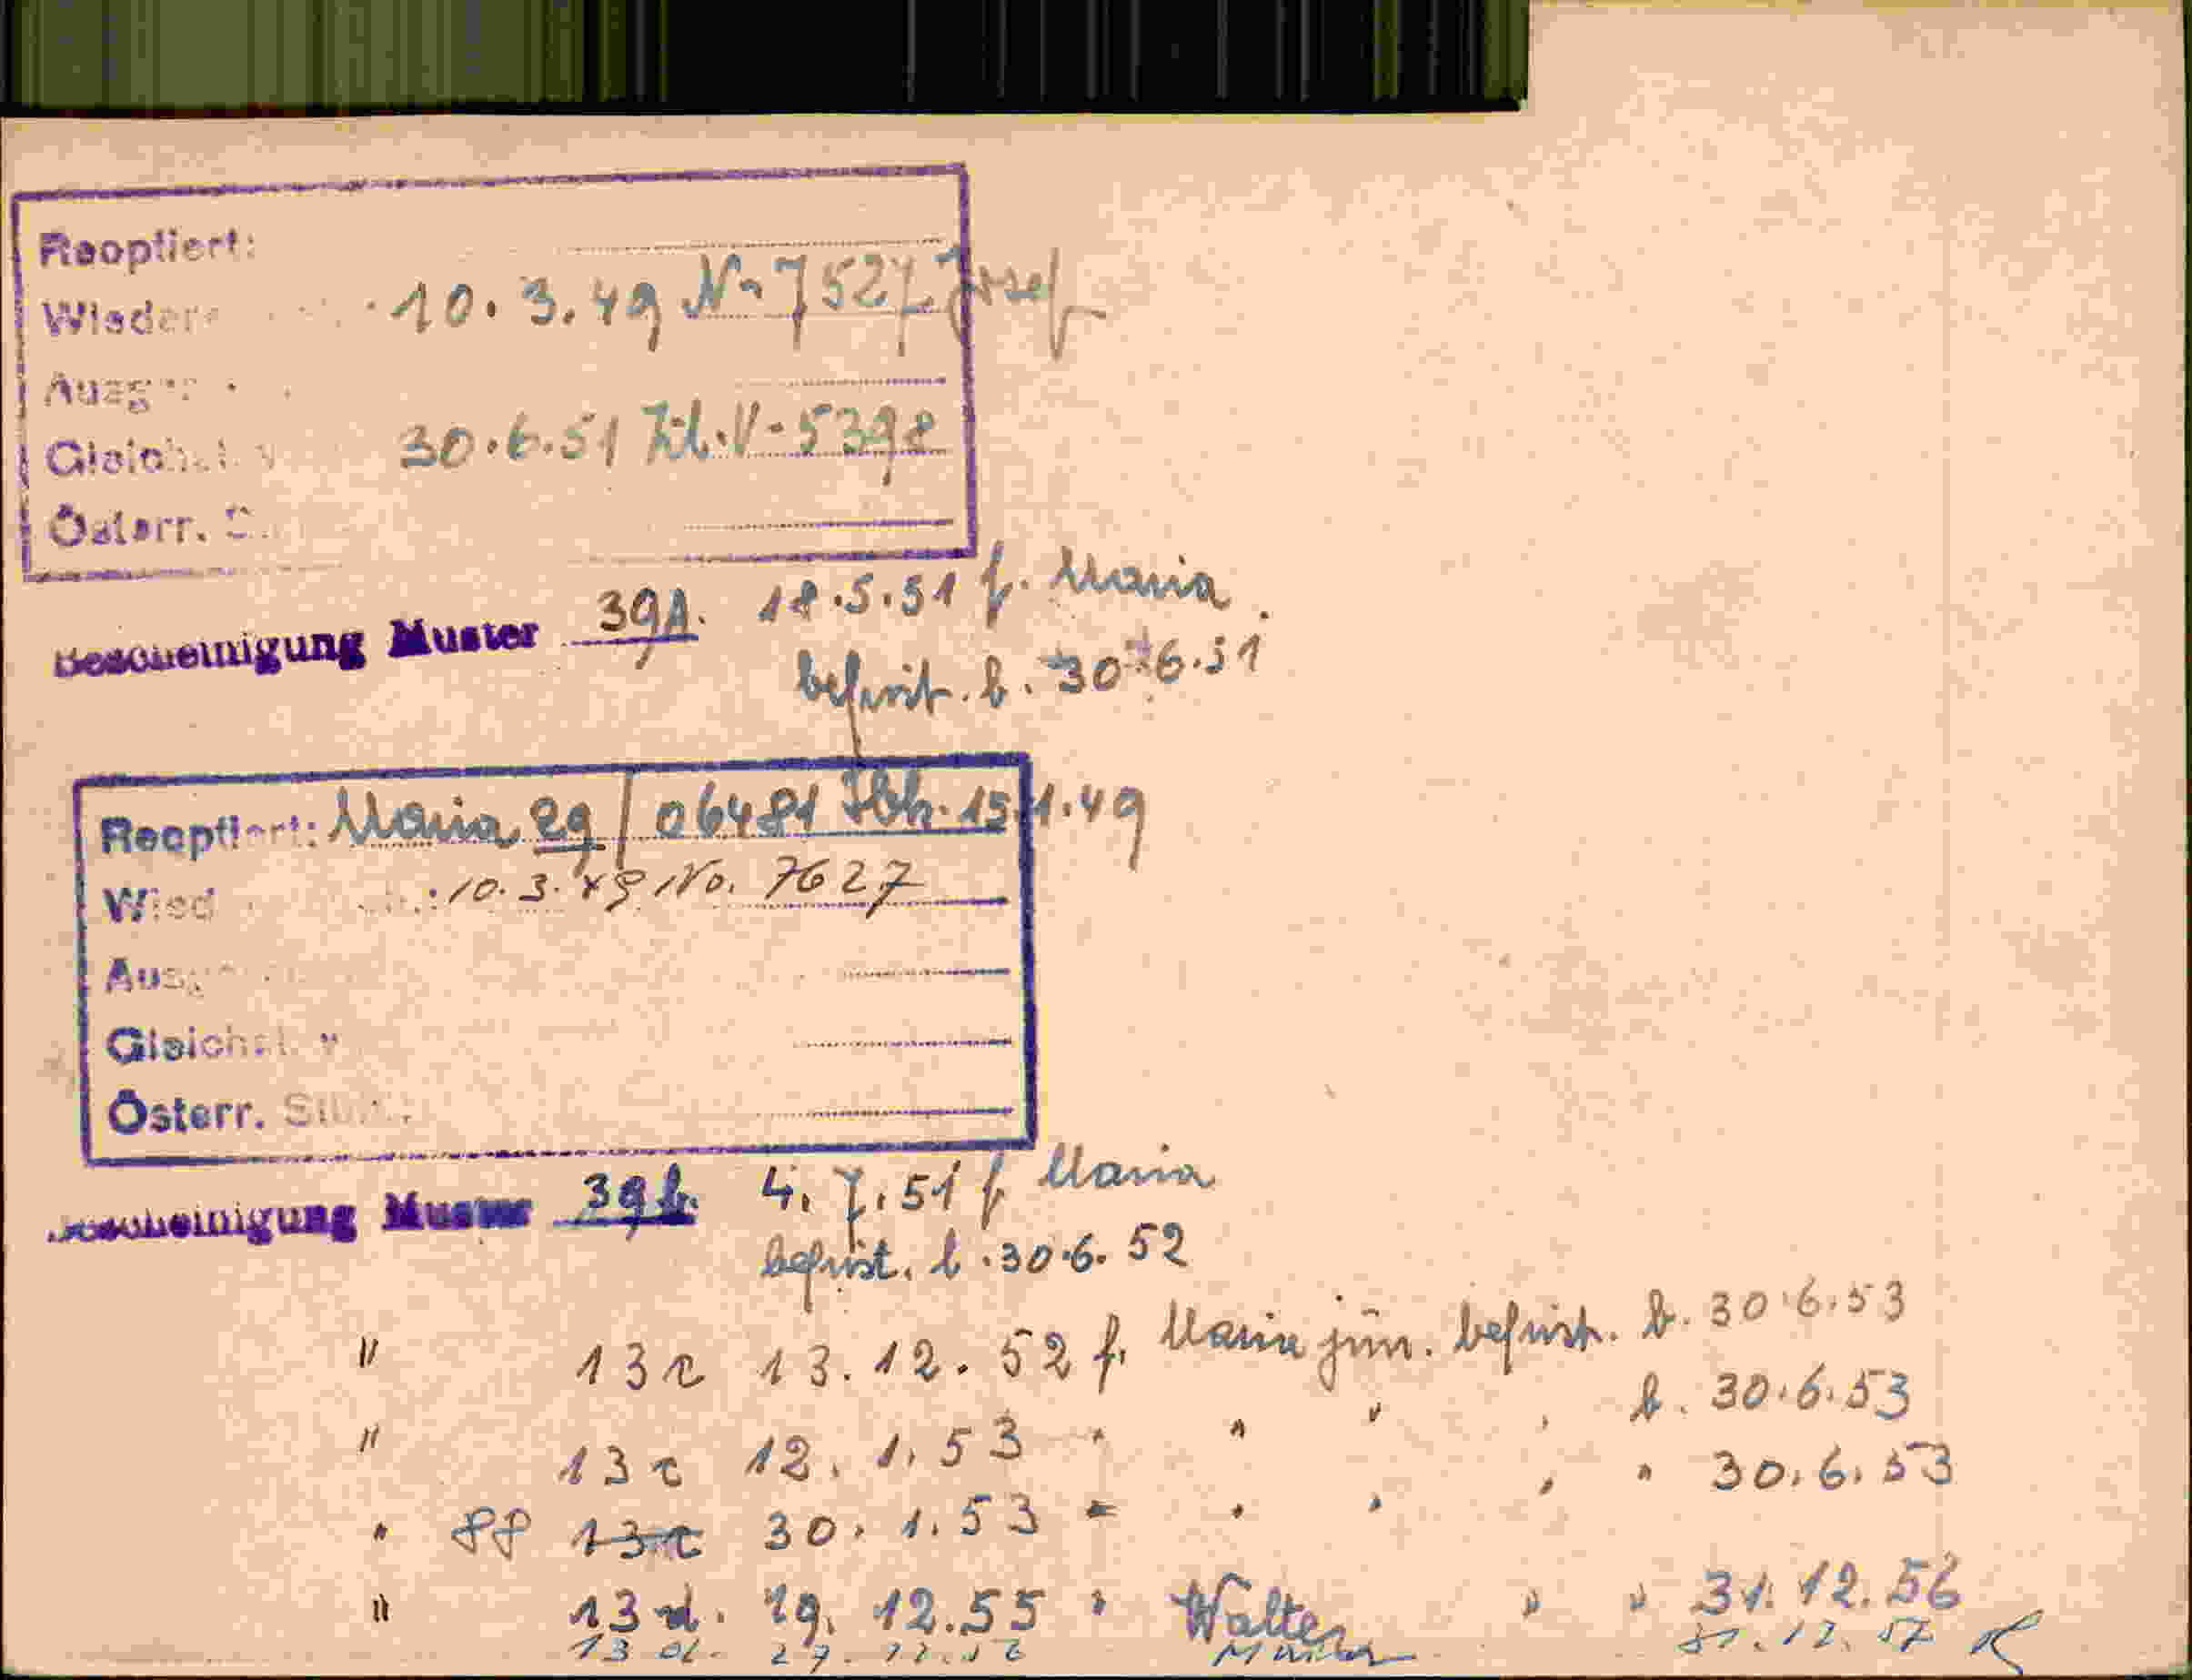 Reoptiert:
10.3.49 No 7527 Josef
30.6.51 Zl. V-5398
Österr.
Bescheinigung Muster 39A. 18.5.51 f. Maria
befrist. b. 30.6.51
Reoptiert: Maria 29/06481 Ibk. 15.1.49
10.3.49 No. 7627
Österr.
Bescheinigung Muster 39b. 4.7.51 f Maria
befrist. b. 30.6.52
" 13c 13.12.52 f. Maria jun. befrist. b. 30.6.53
" 13c 12.1.53 " " " " b. 30.6.53
" 88 13c 30.1.53 " " " " " 30.6.53
" 13d. 29.12.55 " Walter " " 31.12.56
13 31.12.57